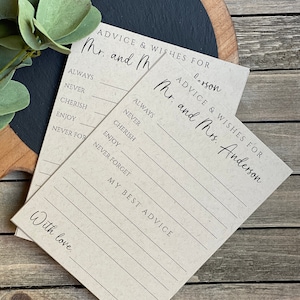 ADVICE & WISHES FOR
Mr. and M
erson
ALWAYS
NEVER
CHERISH
ENJOY
NEVER FOR
ADVICE & WISHES FOR
Mr. and Mrs. Anderson
ALWAYS
NEVER
CHERISH
ENJOY
NEVER FORGET
MY BEST ADVICE
With love